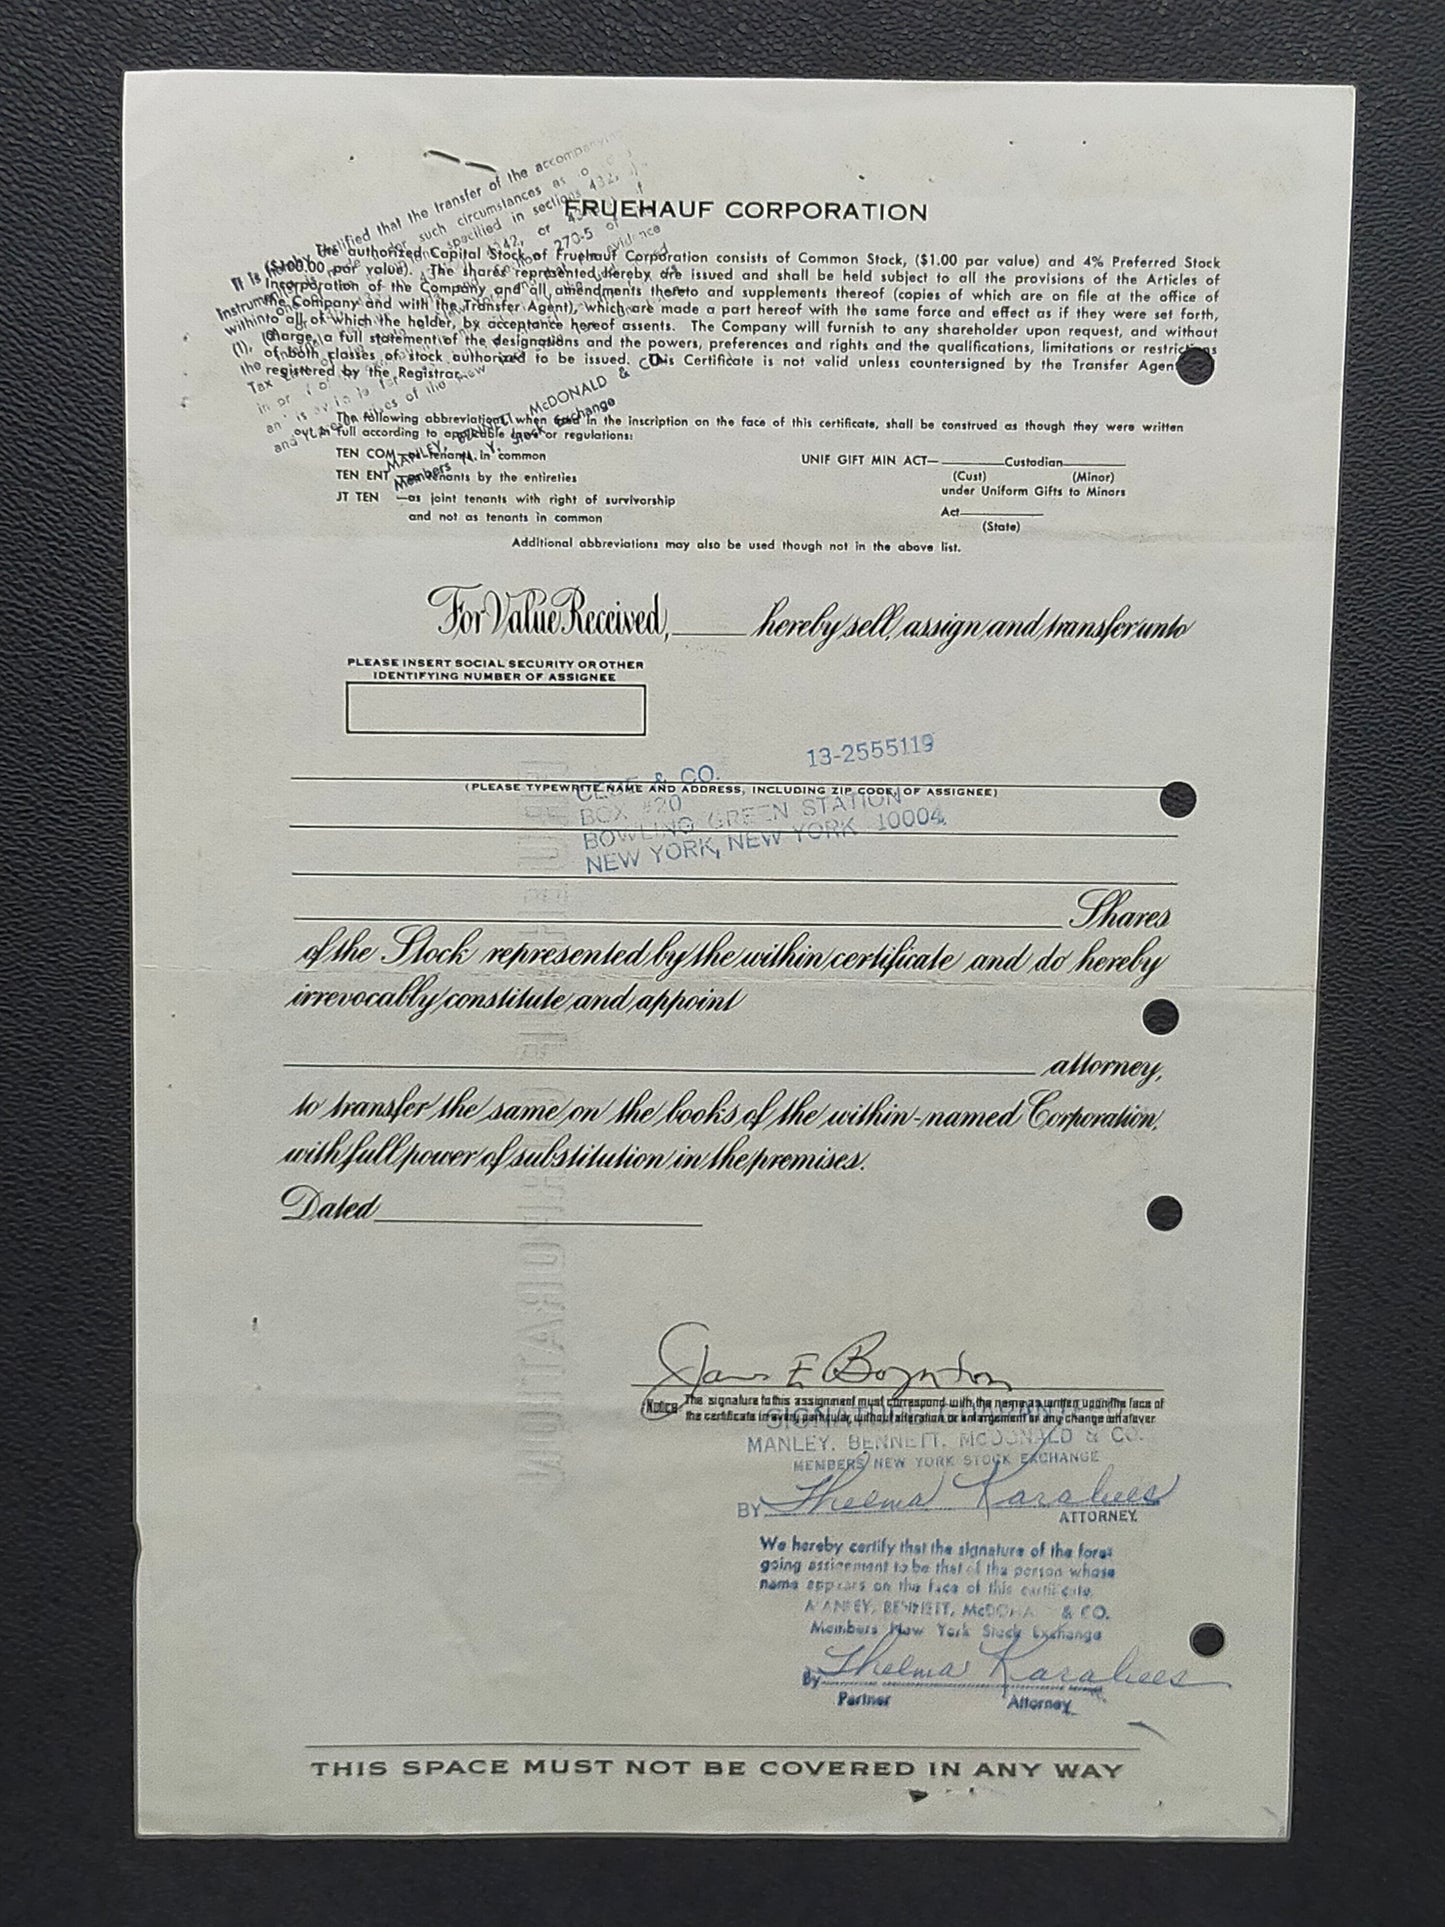 It is hereby certified that the transfer of the accompanying
such circumstances as
specified in sections 432,
270-5 of
evidence
MANLEY, BENNETT, McDONALD & CO.
Members N. Y. Stock Exchange
FRUEHAUF CORPORATION
The authorized Capital Stock of Fruehauf Corporation consists of Common Stock, ($1.00 par value) and 4% Preferred Stock
($100.00 par value). The shares represented hereby are issued and shall be held subject to all the provisions of the Articles of
Incorporation of the Company and all amendments thereto and supplements thereof (copies of which are on file at the office of
the Company and with the Transfer Agent), which are made a part hereof with the same force and effect as if they were set forth,
to all of which the holder, by acceptance hereof assents. The Company will furnish to any shareholder upon request, and without
charge, a full statement of the designations and the powers, preferences and rights and the qualifications, limitations or restrictions
of both classes of stock authorized to be issued. This Certificate is not valid unless countersigned by the Transfer Agent
registered by the Registrar.
The following abbreviations, when used in the inscription on the face of this certificate, shall be construed as though they were written
out in full according to applicable laws or regulations:
TEN COM —as tenants in common
UNIF GIFT MIN ACT— Custodian
TEN ENT —as tenants by the entireties
(Cust) (Minor)
JT TEN —as joint tenants with right of survivorship
under Uniform Gifts to Minors
and not as tenants in common
Act
(State)
Additional abbreviations may also be used though not in the above list.
For Value Received, hereby sell, assign and transfer unto
PLEASE INSERT SOCIAL SECURITY OR OTHER
IDENTIFYING NUMBER OF ASSIGNEE
13-2555119
& CO.
(PLEASE TYPEWRITE NAME AND ADDRESS, INCLUDING ZIP CODE, OF ASSIGNEE)
BOX #20
BOWLING GREEN STATION
NEW YORK, NEW YORK 10004
Shares
of the Stock represented by the within certificate and do hereby
irrevocably constitute and appoint
attorney,
to transfer the same on the books of the within-named Corporation,
with full power of substitution in the premises.
Dated
James E Boynton
Notice: The signature to this assignment must correspond with the name as written upon the face of
the certificate in every particular, without alteration or enlargement or any change whatever
SIGNATURE GUARANTEED
MANLEY, BENNETT, McDONALD & CO.
MEMBERS NEW YORK STOCK EXCHANGE
BY Thelma Karabees
ATTORNEY.
We hereby certify that the signature of the fore-
going assignment to be that of the person whose
name appears on the face of this certificate.
MANLEY, BENNETT, McDONALD & CO.
Members New York Stock Exchange
By Thelma Karabees
Partner Attorney
THIS SPACE MUST NOT BE COVERED IN ANY WAY